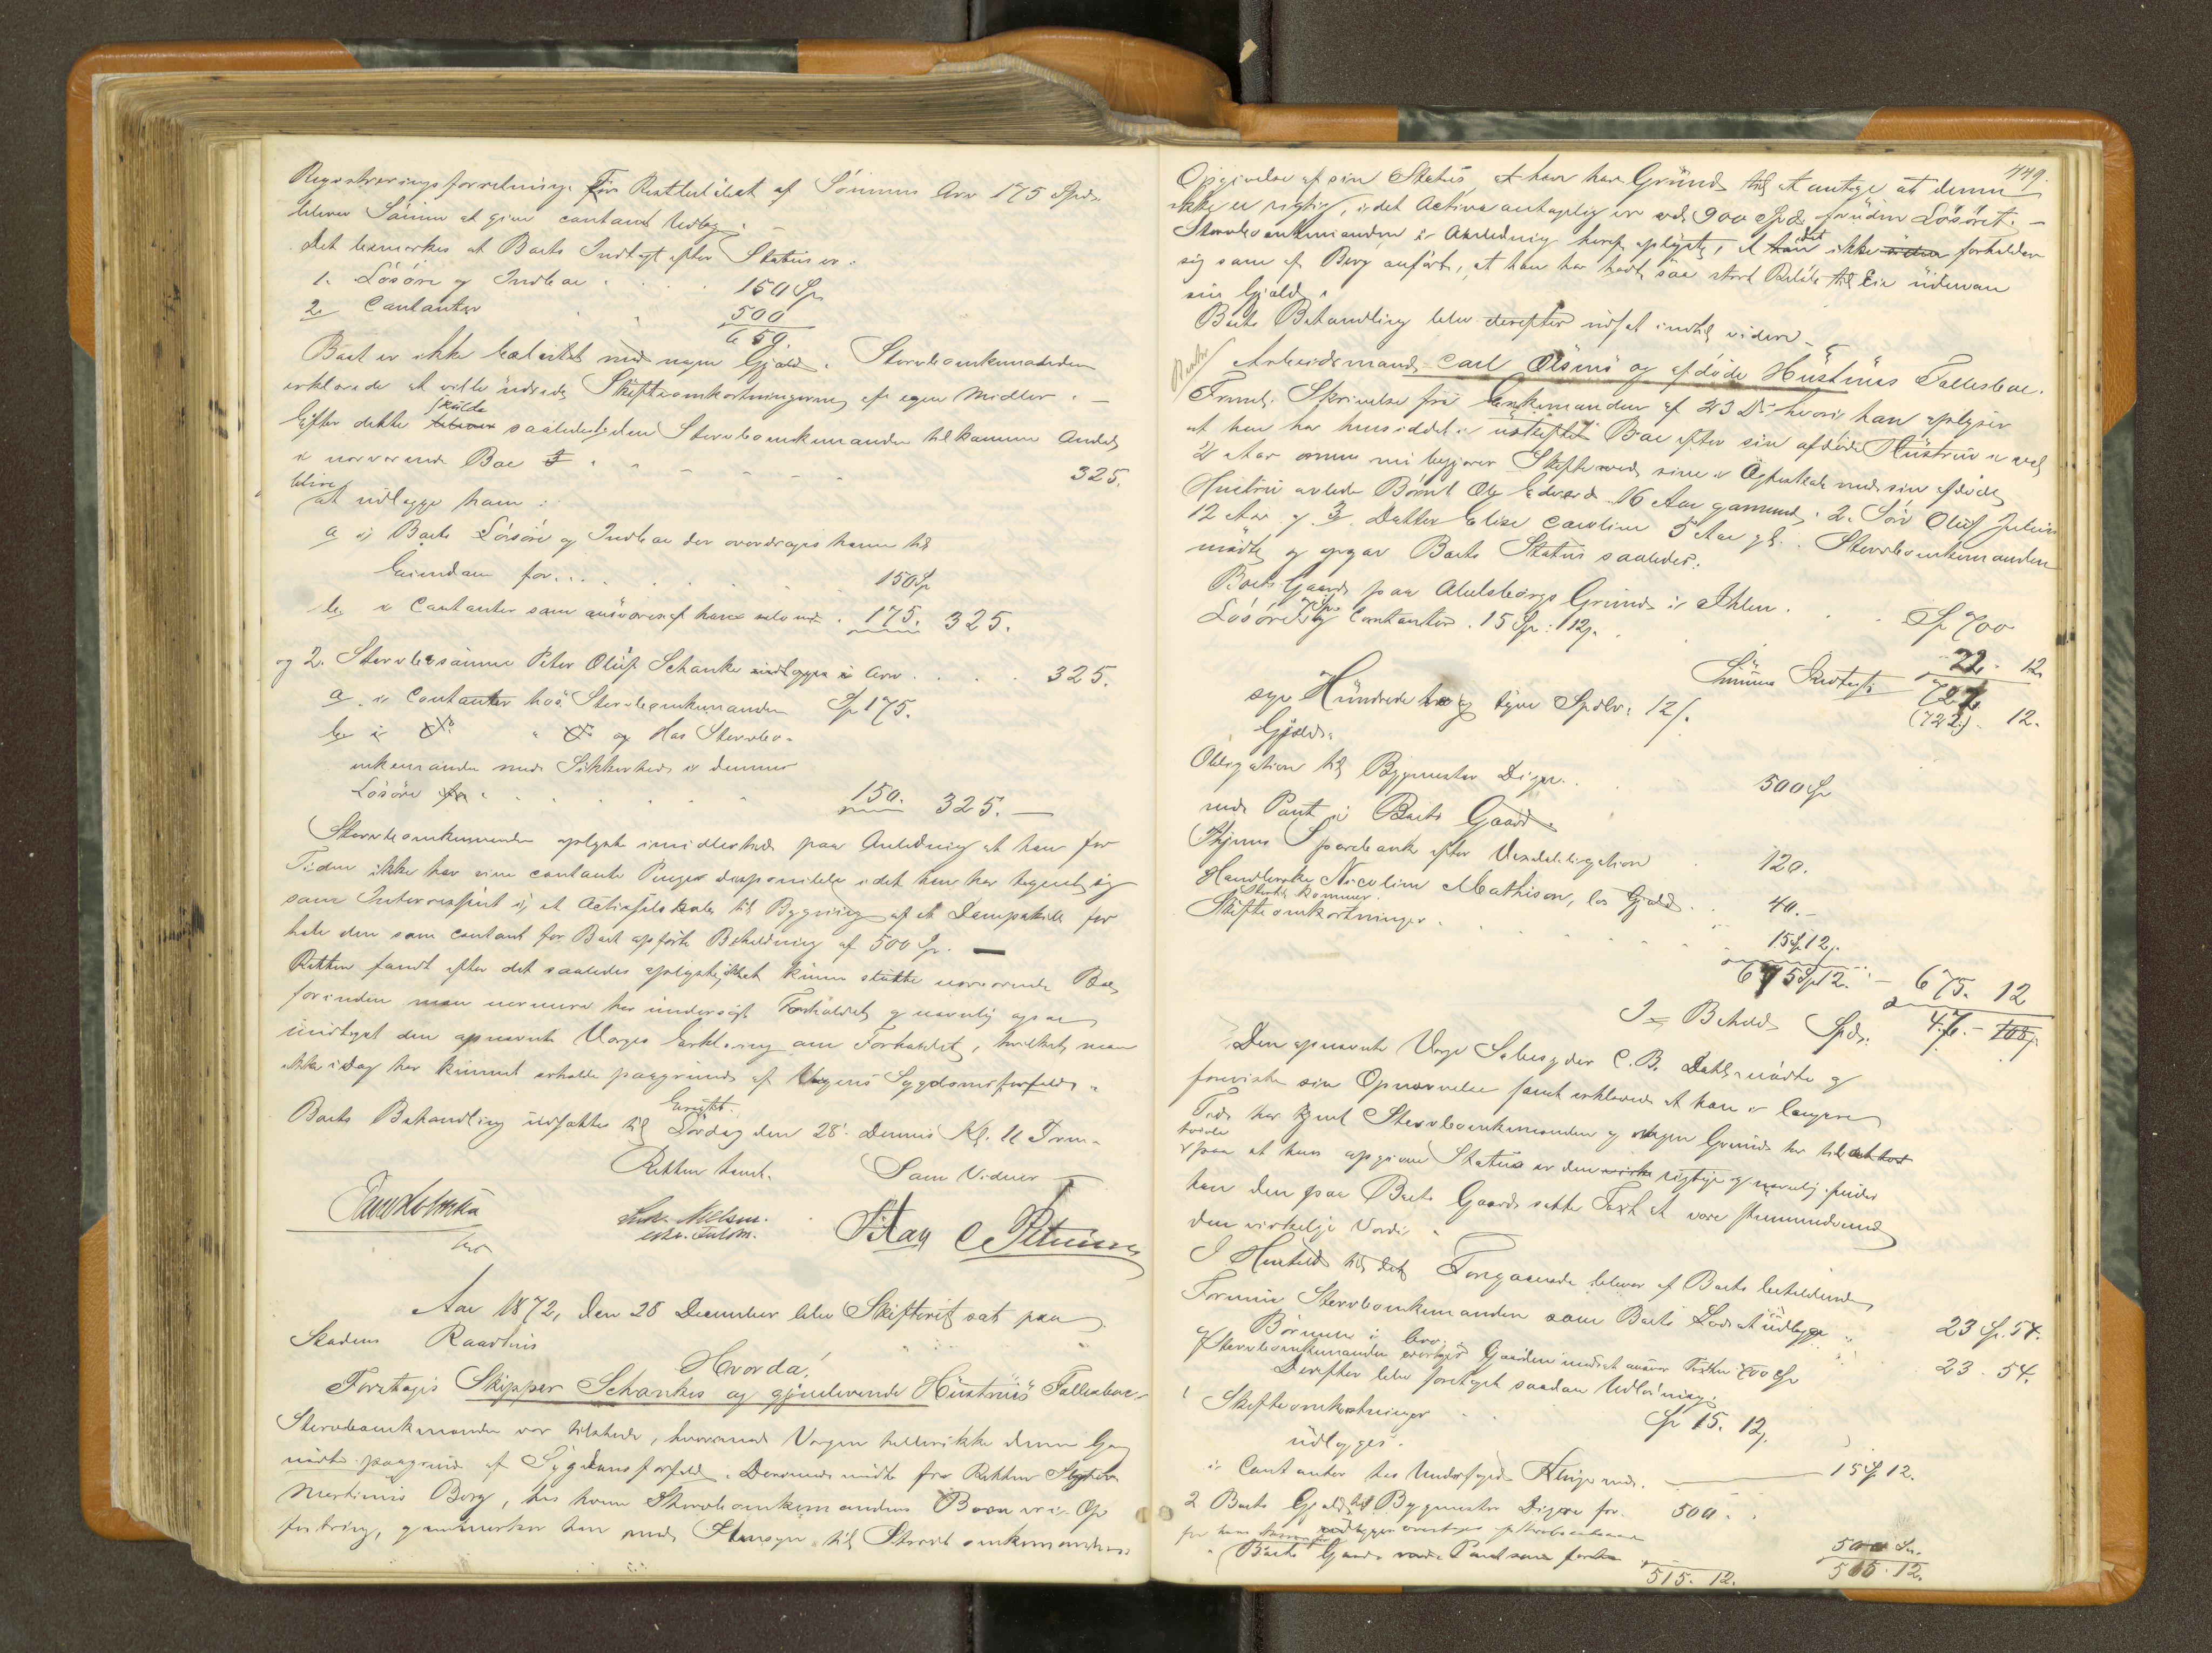 Registreringsforretning. For Restbeløbet af Sønnens Arv 175 Spd.
blever Sønnen at give contant Udlæg.
Det bemærkes at Boets Indtægt efter Status er:
1. Løsøre og Indboe . . . . 150 Sp.
2. Contanter . . 500
650.
Boet er ikke belastet med nogen Gjæld. Stervboenkemanden
erklærede at ville udrede Skifteomkostningerne af egne Midler. —
Efter dette skulde saaledes den Stervboenkemanden tilkomne Andel
i nærværende Boe . . . . . 325.
blive
at udlægge ham:
a i Boets Løsøre og Indboe der overdrages ham til
Eiendom for . . . . . 150 Sp
b, i Contanter som ansvares af ham selv med . 175. 325.
og 2. Stervbesønnen Peter Oluf Schanke udlægges i Arv . . . . 325.
a. i Contanter hos Stervboenkemanden Sp 175.
b i do " do og Hos Stervbo-
enkemanden mod Sikkerhed i dennes
Løsøre . . . . . 150. 325. —
Stervboenkemanden oplyste imidlertid paa Anledning at han for
Tiden ikke har sine contante Penge disponible idet han har tegnet sig
som Interessent i, et Actieselskab til Bygning af et Dampskib for
hele den som contant for Boet opførte Beholdning af 500 Sp. —
Retten fandt efter det saaledes oplyste, ikke at kunne slutte nærværende Boe,
forinden man nærmere har undersøgt Forholdet og navnlig ogsaa
indtaget den opnævnte Værges Erklæring om Forholdet, hvilket man
ikke i Dag har kunnet erholde paagrund af Værgens Sygdomsforfald.
Boets Behandling udsattes til Lørdag den 28' dennes Kl. 11 Form.
Retten hævet. Som Vidner
Aar 1872, den 28 December blev Skifteret sat paa
Stadens Raadhus
Hvorda!
Foretages Skipper Schankes og gjenlevende Hustrues Fællesboe.
Stervboenkemanden var tilstede, hvorimod Værgen hellerikke denne Gang
mødte paagrund af Sygdomsforfald. Derimod mødte for Retten
Martinus Berg, hos hvem Stervboenkemandens Barn er i Op-
fostring, og anmærker han med Hensyn til Stervboenkemandens
449.
Opgivelse af sin Status, at han har Grund til at antage at denne
ikke er rigtig, idet Activa antagelig er ved 900 Spd. foruden Løsøret. —
Stervboenkemanden i Anledning heraf oplyste, at det ikke forholder
sig som af Berg anført, at han har havt saa stort Beløb til Eie uden om
sin Gjæld.
Boets Behandling blev udsat indtil videre. —
Arbeidsmand Carl Olsens og afdøde Hustrues Fællesboe.
Freml. Skrivelse fra Enkemanden af 23 Ds hvori han oplyser
at han har hensiddet i uskiftet Boe efter sin afdøde Hustrue i ved
2 Aar men nu begjærer Skifte med sine i Ægteskab med sin afdøde
Hustru avlede Børn 1 Ole Edvard 16 Aar gammel, 2. Søn Oluf Julius
12 Aar og 3. Datter Elise Caroline 5 Aar gl. Stervboenkemanden
mødte og opgav Boets Status saaledes:
Boets Gaard paa Abelsborgs Grund i Ihlen . . Sp 700
Løsøre og Contanter . 15 Sp: 12 . 22. 12
Summa 722. 12.
syv Hundrede to og tyve Spdlr: 12 s.
Gjæld.
Obligation til Bygmester Digre . . 500 Sp
med Pant i Boets Gaard.
Thjems Sparebank efter Vexelobligation . 120.
Handlerske Nicoline Mathisen, løs Gjæld . . 40.—
Skifteomkostninger . . . . 15 Sp 12
675 Sp 12. — 675. 12
I Behold Spd. 47. —
Den opnævnte Værge C. B. Dahl mødte og
foreviste sin Opnævnelse samt erklærede at han i længere
Tid har kjendt Stervboenkemanden og ingen Grund har til at tvivle
paa at hans opgivne Status er den rigtige og navnlig finder
han den paa Boets Gaard satte Taxt at være stemmende med
den virkelige Værdi.
I Henhold til det Foregaaende bliver af Boets beholdende
Formue Stervboenkemanden som Boets Lod at udlægge . 23 Sp. 54.
Børnene i Arv . . 23. 54.
Stervboenkemanden overtager Gaarden imod at ansvare Taxten 700 Sp
Derefter blev foretaget saadan Udlodning:
1 Skifteomkostninger . Sp 15. 12
udlægges.
i Contanter hos Undertegnede — 15 Sp 12.
2 Boets Gjæld til Bygmester Digre for . 500 . .
Boets Gaard 500
515. 12. 515. 12.